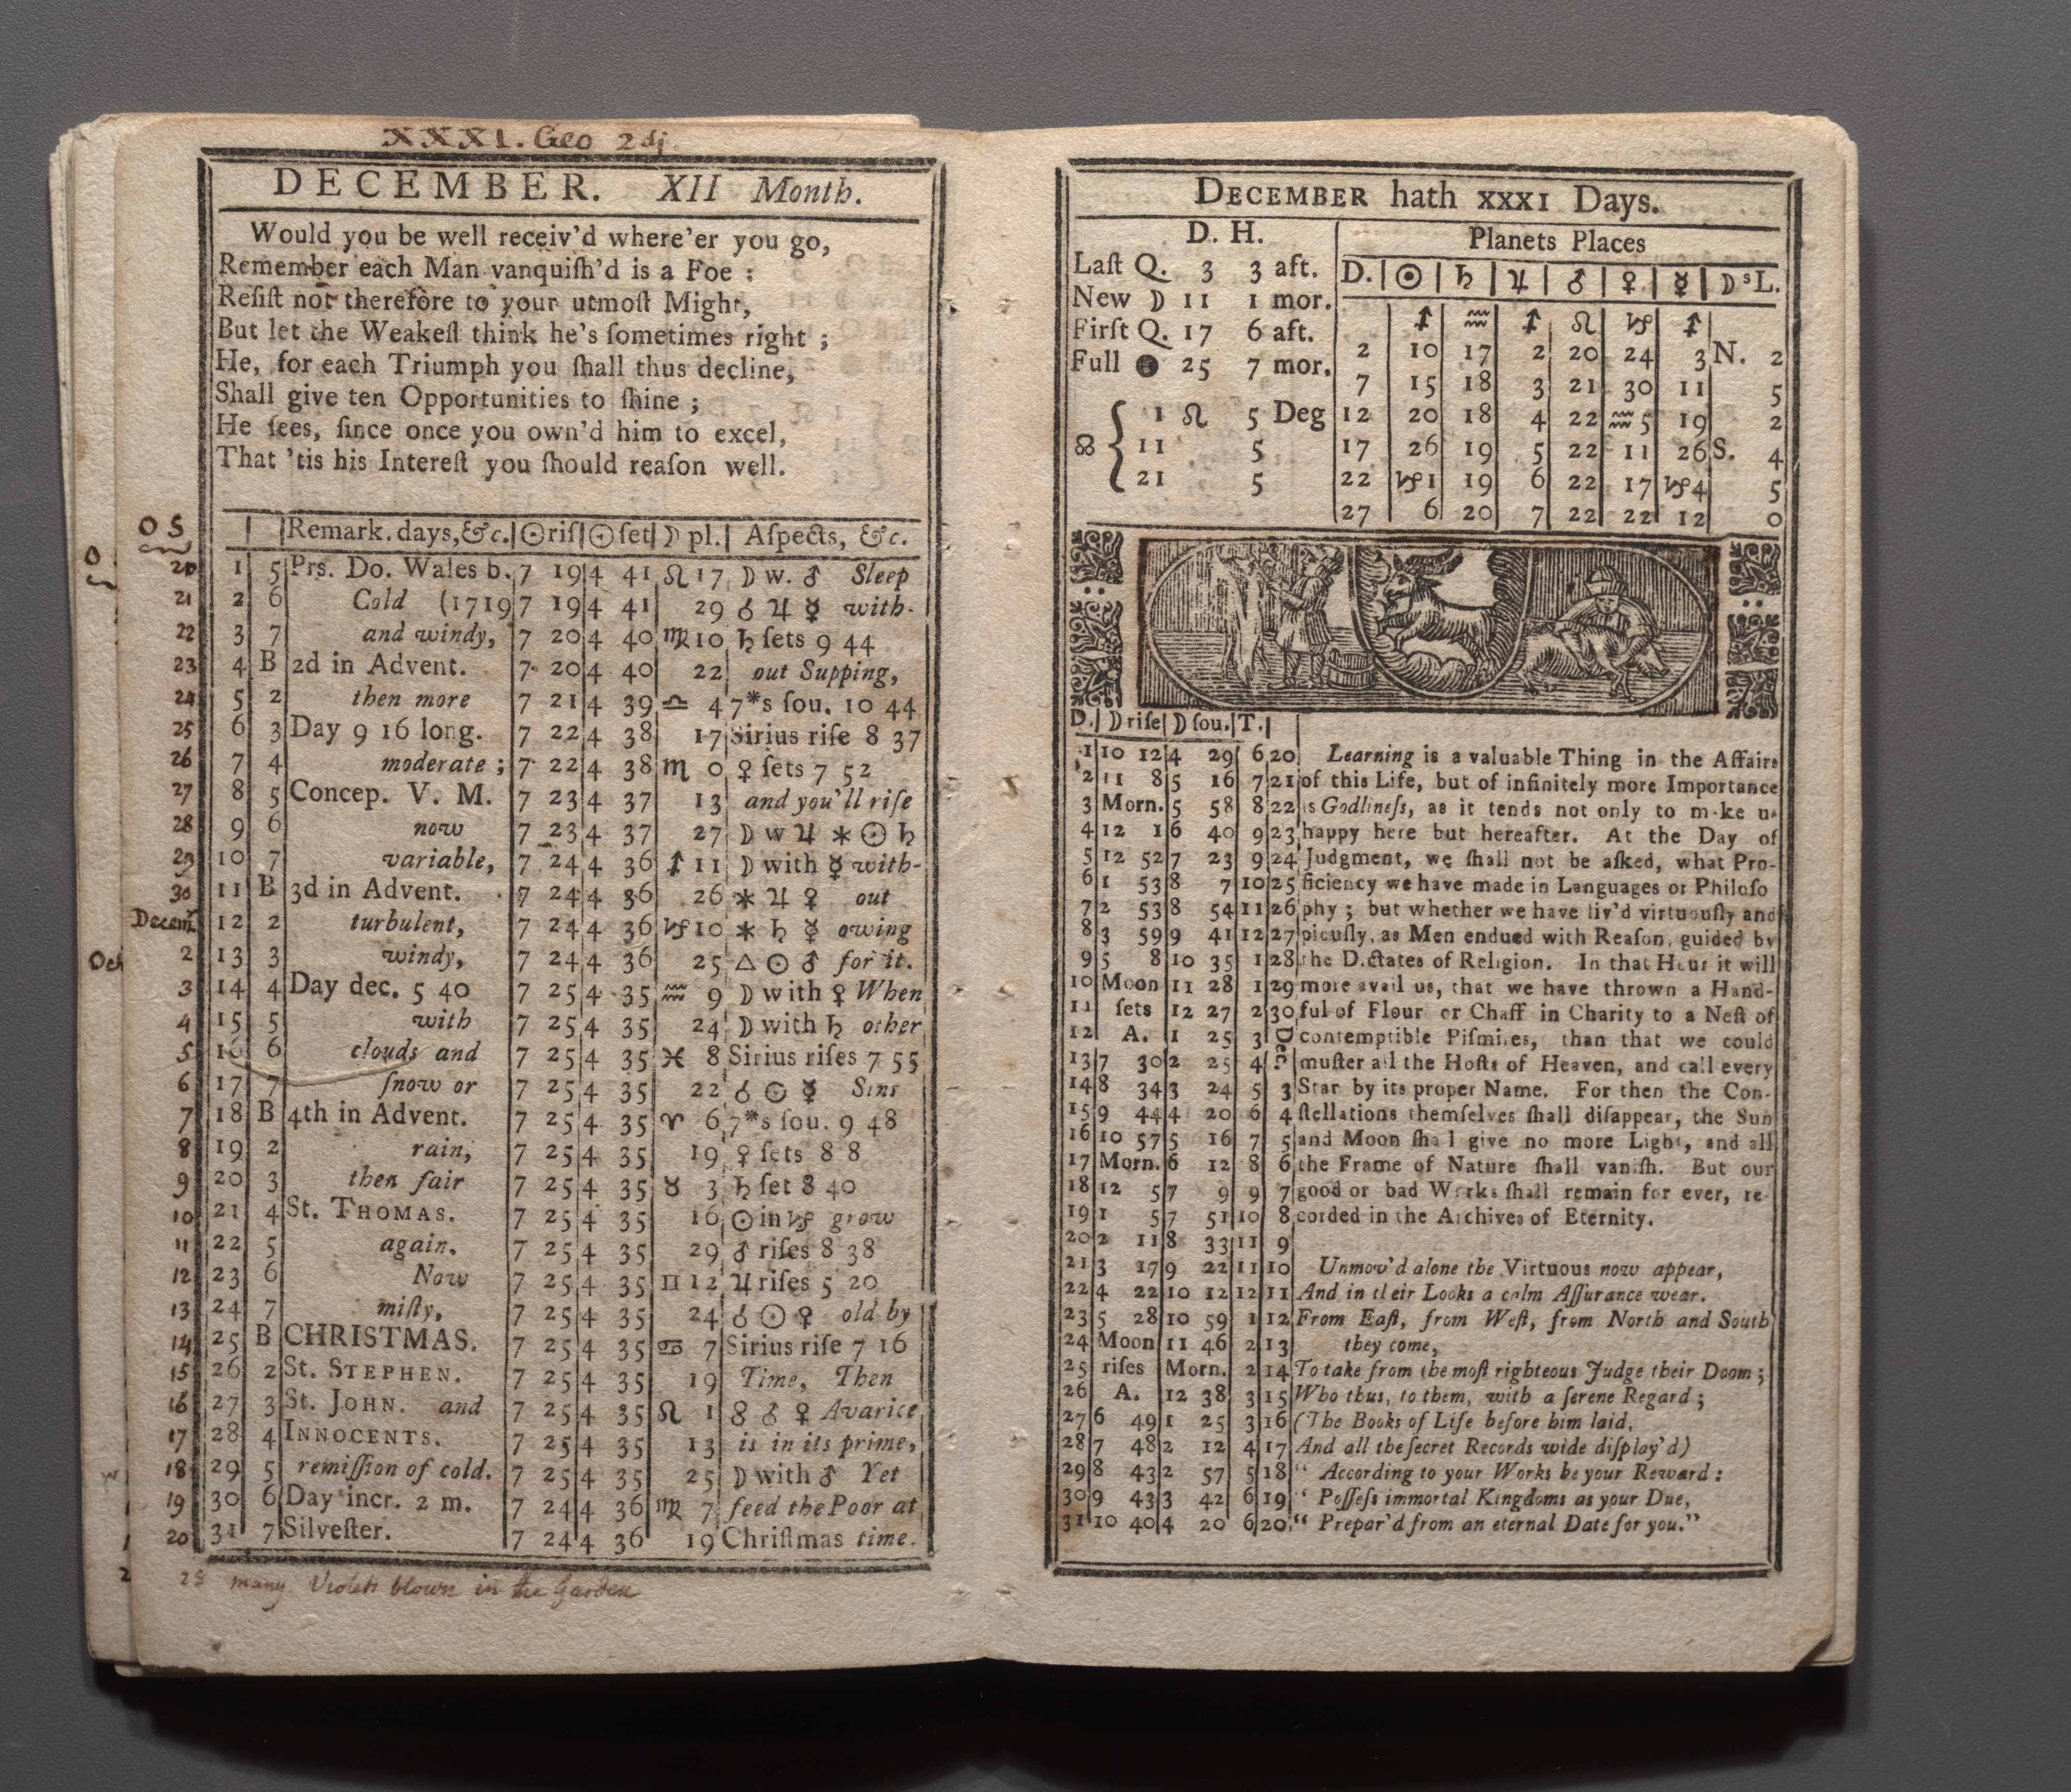 XXXI. Geo 2d
DECEMBER. XII Month.
Would you be well receiv'd where'er you go,
Remember each Man vanquiſh'd is a Foe :
Reſiſt not therefore to your utmoſt Might,
But let the Weakeſt think he's ſometimes right ;
He, for each Triumph you ſhall thus decline,
Shall give ten Opportunities to ſhine ;
He ſees, ſince once you own'd him to excel,
That 'tis his Intereſt you ſhould reaſon well.
O S
Remark. days, &c. ☉riſ ☉ſet ☽ pl. Aſpects, &c.
20 1 5 Prs. Do. Wales b. 7 19 4 41 ♌ 17 ☽ w. ♂ Sleep
21 2 6 Cold (1719 7 19 4 41 29 ☌ ♃ ☿ with-
22 3 7 and windy, 7 20 4 40 ♍ 10 ♄ ſets 9 44
23 4 B 2d in Advent. 7 20 4 40 22 out Supping,
24 5 2 then more 7 21 4 39 ♎ 4 7*s ſou. 10 44
25 6 3 Day 9 16 long. 7 22 4 38 17 Sirius riſe 8 37
26 7 4 moderate ; 7 22 4 38 ♏ 0 ♀ ſets 7 52
27 8 5 Concep. V. M. 7 23 4 37 13 and you'll riſe
28 9 6 now 7 23 4 37 27 ☽ w ♃ ⚹ ☉ ♄
29 10 7 variable, 7 24 4 36 ♐ 11 ☽ with ☿ with-
30 11 B 3d in Advent. 7 24 4 36 26 ⚹ ♃ ♀ out
Decem 12 2 turbulent, 7 24 4 36 ♑ 10 ⚹ ♄ ☿ owing
2 13 3 windy, 7 24 4 36 25 △ ☉ ♂ for it.
3 14 4 Day dec. 5 40 7 25 4 35 ♒ 9 ☽ with ♀ When
4 15 5 with 7 25 4 35 24 ☽ with ♄ other
5 16 6 clouds and 7 25 4 35 ♓ 8 Sirius riſes 7 55
6 17 7 ſnow or 7 25 4 35 22 ☌ ☉ ☿ Sins
7 18 B 4th in Advent. 7 25 4 35 ♈ 6 7*s ſou. 9 48
8 19 2 rain, 7 25 4 35 19 ♀ ſets 8 8
9 20 3 then fair 7 25 4 35 ♉ 3 ♄ ſet 8 40
10 21 4 St. THOMAS. 7 25 4 35 16 ☉ in ♑ grow
11 22 5 again. 7 25 4 35 29 ♂ riſes 8 38
12 23 6 Now 7 25 4 35 ♊ 12 ♃ riſes 5 20
13 24 7 miſty, 7 25 4 35 24 ☌ ☉ ♀ old by
14 25 B CHRISTMAS. 7 25 4 35 ♋ 7 Sirius riſe 7 16
15 26 2 St. STEPHEN. 7 25 4 35 19 Time, Then
16 27 3 St. JOHN. and 7 25 4 35 ♌ 1 ☍ ♂ ♀ Avarice
17 28 4 INNOCENTS. 7 25 4 35 13 is in its prime,
18 29 5 remiſſion of cold. 7 25 4 35 25 ☽ with ♂ Yet
19 30 6 Day incr. 2 m. 7 24 4 36 ♍ 7 feed the Poor at
20 31 7 Silveſter. 7 24 4 36 19 Chriſtmas time.
28 many Violets blown in the Garden
DECEMBER hath XXXI Days.
D. H.
Laſt Q. 3 3 aft.
New ☽ 11 1 mor.
Firſt Q. 17 6 aft.
Full ● 25 7 mor.
☊ { 1 ♌ 5 Deg
11 5
21 5
Planets Places
D. ☉ ♄ ♃ ♂ ♀ ☿ ☽sL.
♐ ♒ ♐ ♌ ♑ ♐
2 10 17 2 20 24 3 N. 2
7 15 18 3 21 30 11 5
12 20 18 4 22 ♒5 19 2
17 26 19 5 22 11 26 S. 4
22 ♑1 19 6 22 17 ♑4 5
27 6 20 7 22 22 12 0
D. ☽ riſe ☽ ſou. T.
1 10 12 4 29 6 20 Learning is a valuable Thing in the Affairs
2 11 8 5 16 7 21 of this Life, but of infinitely more Importance
3 Morn. 5 58 8 22 is Godlineſs, as it tends not only to make us
4 12 1 6 40 9 23 happy here but hereafter. At the Day of
5 12 52 7 23 9 24 Judgment, we ſhall not be aſked, what Pro-
6 1 53 8 7 10 25 ficiency we have made in Languages or Philoſo
7 2 53 8 54 11 26 phy ; but whether we have liv'd virtuouſly and
8 3 59 9 41 12 27 piouſly, as Men endued with Reaſon, guided by
9 5 8 10 35 1 28 the Dictates of Religion. In that Hour it will
10 Moon 11 28 1 29 more avail us, that we have thrown a Hand-
11 ſets 12 27 2 30 ful of Flour or Chaff in Charity to a Neſt of
12 A. 1 25 3 Dec. contemptible Piſmires, than that we could
13 7 30 2 25 4 muſter all the Hoſts of Heaven, and call every
14 8 34 3 24 5 3 Star by its proper Name. For then the Con-
15 9 44 4 20 6 4 ſtellations themſelves ſhall diſappear, the Sun
16 10 57 5 16 7 5 and Moon ſhall give no more Light, and all
17 Morn. 6 12 8 6 the Frame of Nature ſhall vaniſh. But our
18 12 5 7 9 9 7 good or bad Works ſhall remain for ever, re
19 1 5 7 51 10 8 corded in the Archives of Eternity.
20 2 11 8 33 11 9
21 3 17 9 22 11 10 Unmov'd alone the Virtuous now appear,
22 4 22 10 12 12 11 And in their Looks a calm Aſſurance wear.
23 5 28 10 59 1 12 From Eaſt, from Weſt, from North and South
24 Moon 11 46 2 13 they come,
25 riſes Morn. 2 14 To take from the moſt righteous Judge their Doom ;
26 A. 12 38 3 15 Who thus, to them, with a ſerene Regard ;
27 6 49 1 25 3 16 (The Books of Life before him laid,
28 7 48 2 12 4 17 And all the ſecret Records wide diſplay'd)
29 8 43 2 57 5 18 "According to your Works be your Reward :
30 9 43 3 42 6 19 "Poſſeſs immortal Kingdoms as your Due,
31 10 40 4 20 6 20 "Prepar'd from an eternal Date for you."